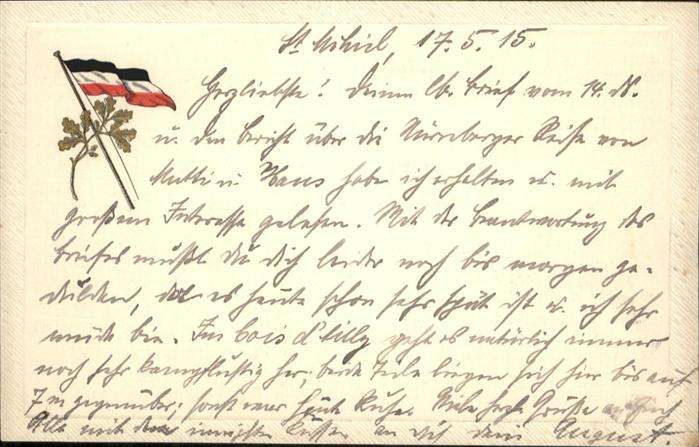 St Mihiel, 17.5.15.
Herzliebste! Deinen lb. Brief vom 14. ds.
u. den Bericht über die Nürnberger Reise von
Mutti u. Hans habe ich erhalten u. mit
großem Interesse gelesen. Mit der Beantwortung des
Briefes mußt du dich leider noch bis morgen ge-
dulden, da es heute schon sehr spät ist u. ich sehr
müde bin. Im bois d'Ailly geht es natürlich immer
noch sehr kampflustig her; beide Teile liegen sich hier bis auf
7 m gegenüber; sonst war heute Ruhe. Viele herzl. Grüße an Euch
Alle mit den innigsten Küssen an dich dein August.